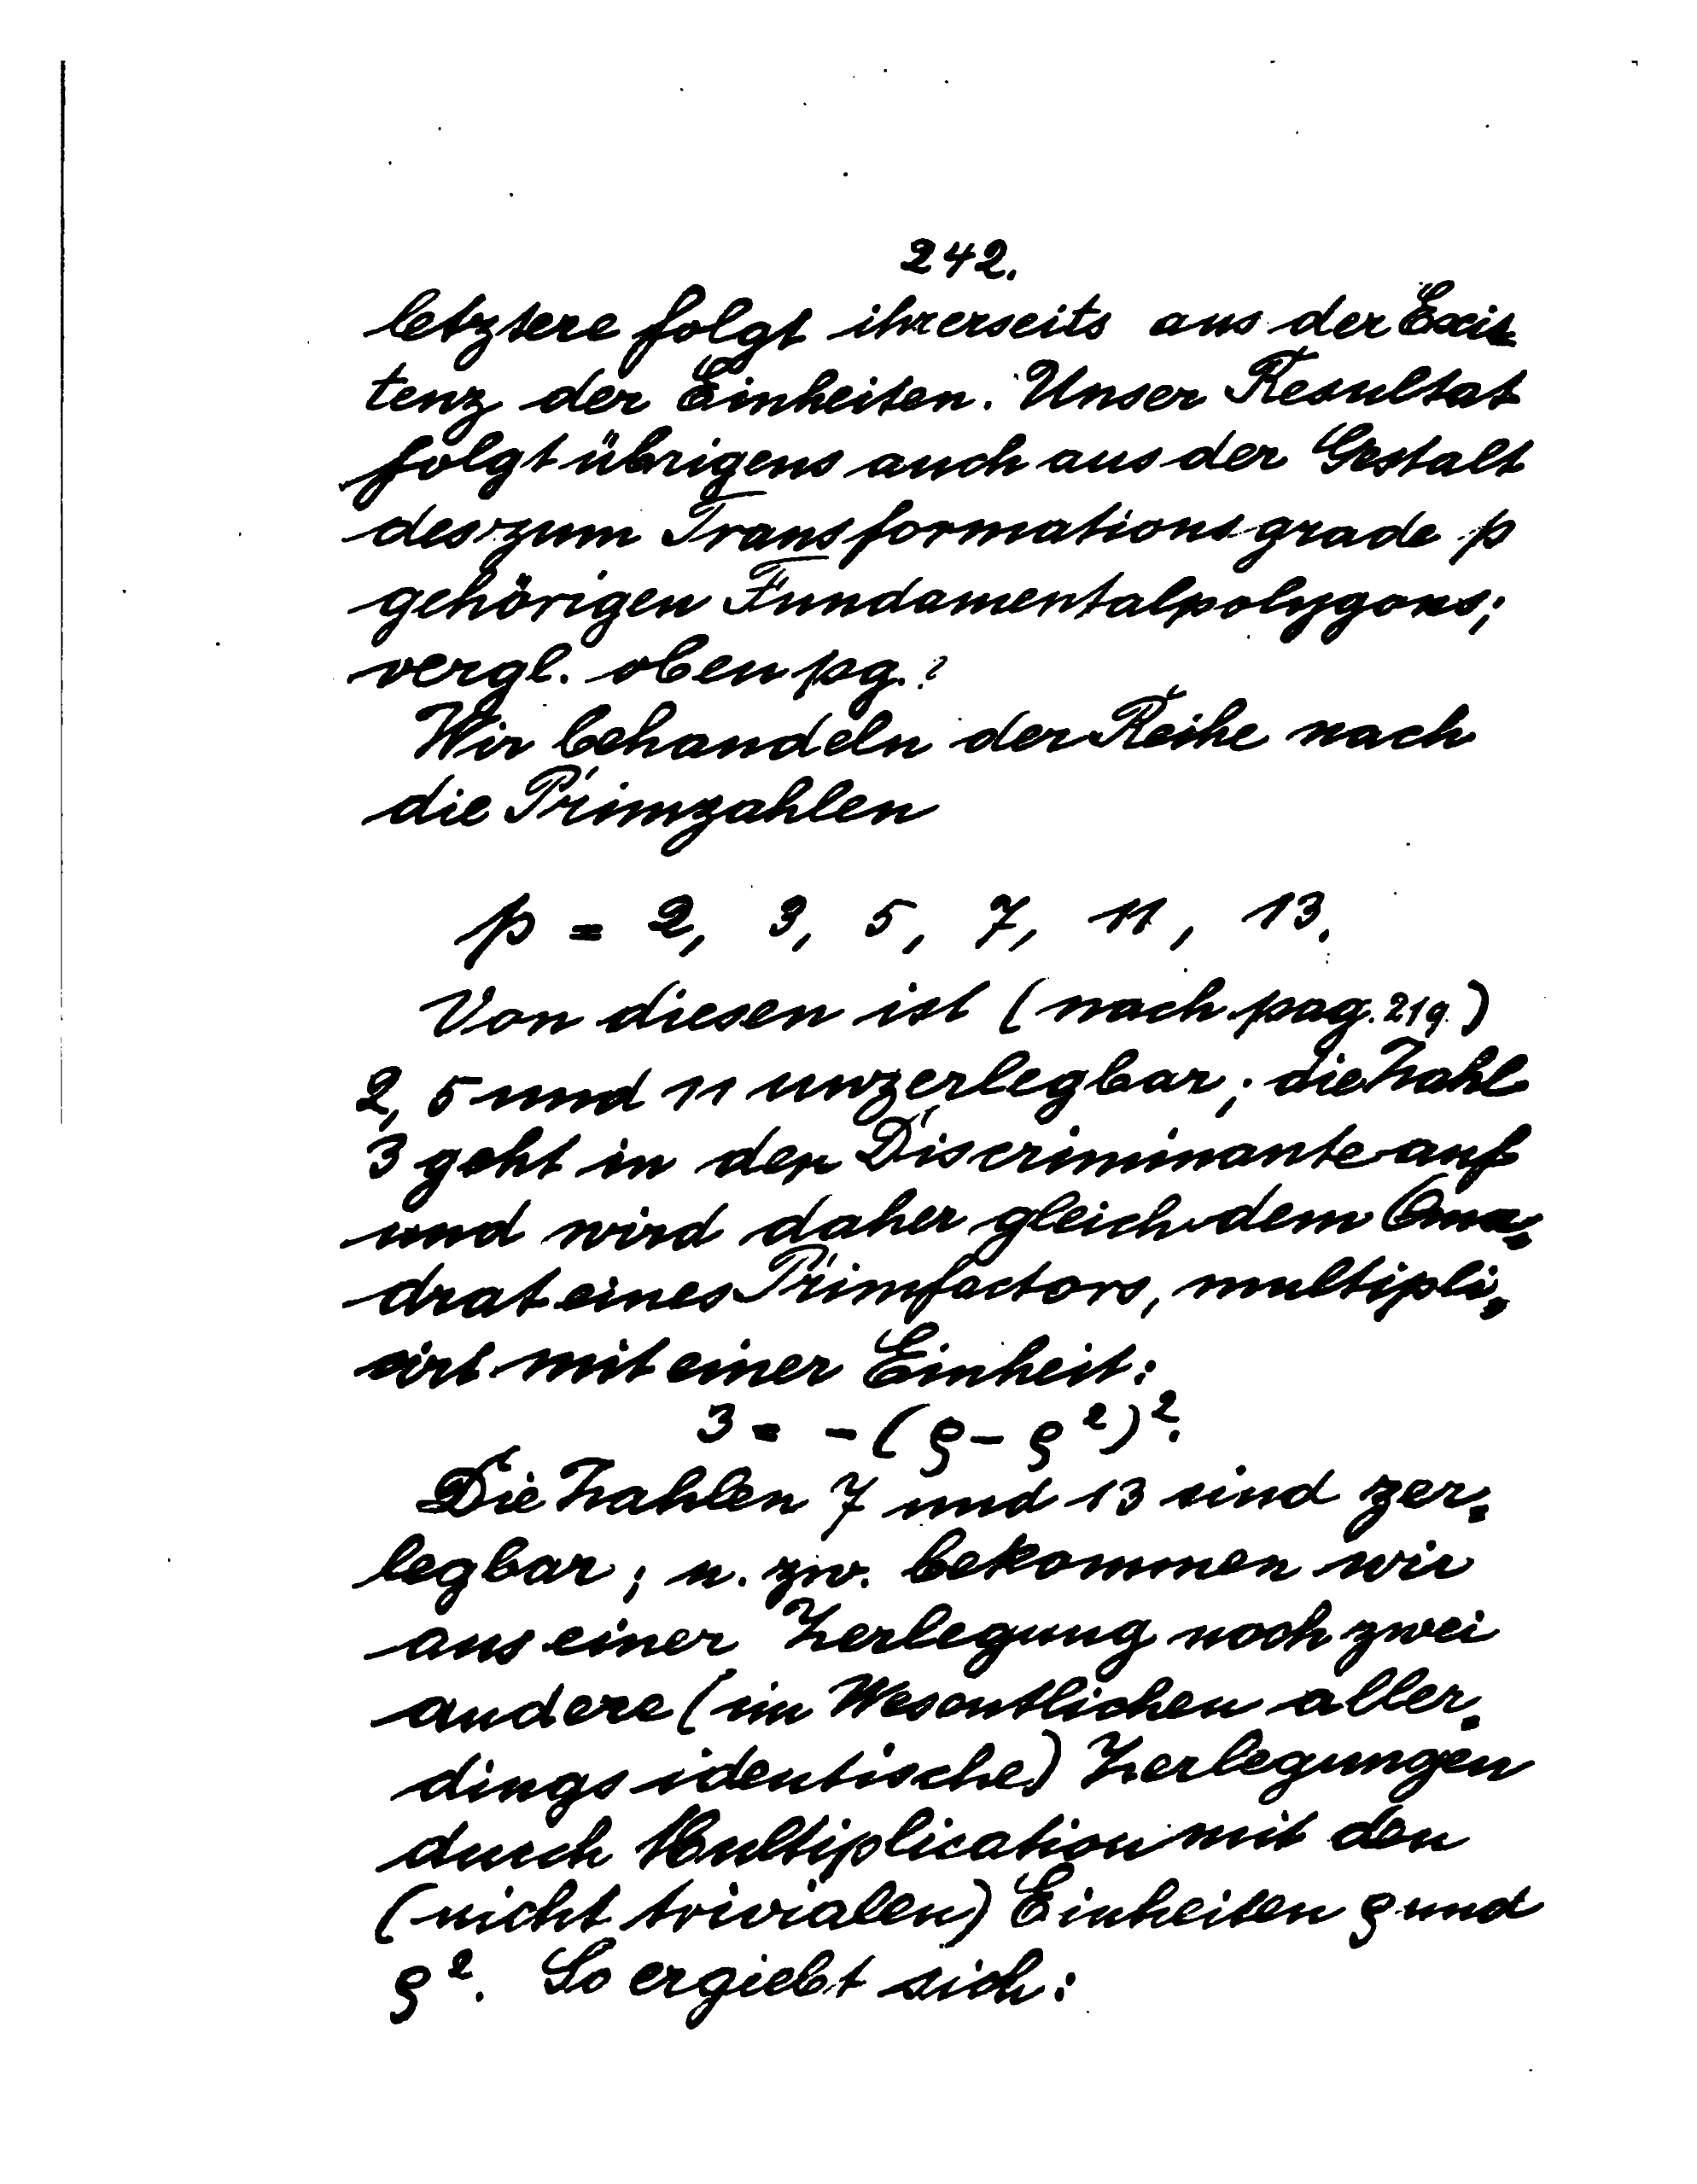 242.
letztere folgt ihrerseits aus der Exis
tenz der Einheiten. Unser Resultat
folgt übrigens auch aus der Gestalt
des zum Transformationsgrade p
gehörigen Fundamentalpolygons;
vergl. oben pg. ?
Wir behandeln der Reihe nach
die Primzahlen
p = 2, 3, 5, 7, 11, 13.
Von diesen ist (nach pag. 219.)
2, 5 und 11 unzerlegbar; die Zahl
3 geht in der Discriminante auf
und wird daher gleich dem Qua=
drat eines Primfactors, multipli=
cirt mit einer Einheit:
3 = -(ρ - ρ²)².
Die Zahlen 7 und 13 sind zer=
legbar; u. zw. bekommen wir
aus einer Zerlegung noch zwei
andere (im Wesentlichen aller=
dings identische) Zerlegungen
durch Multiplication mit den
(nicht trivialen) Einheiten ρ und
ρ². So ergiebt sich: